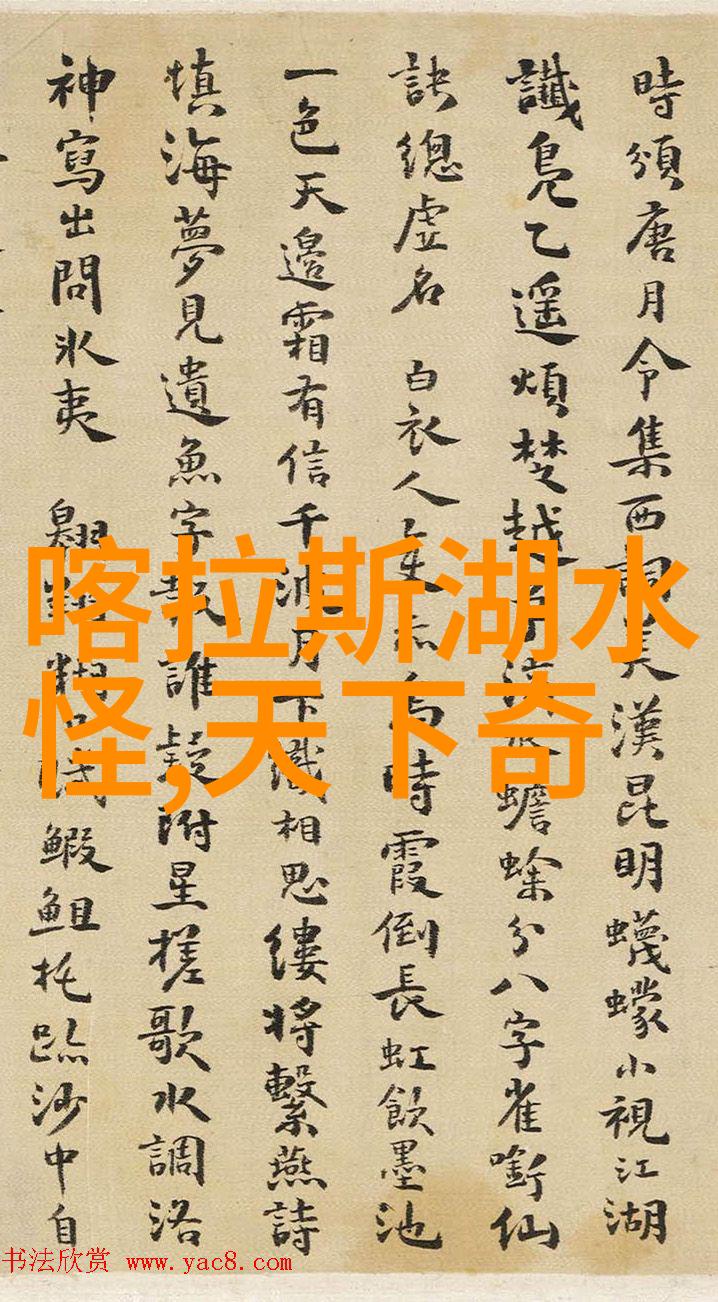 時頒唐月令集西美漢昆明蠛蠓小視江湖
讖鳧乙遥煩楚越蟾蜍分八字雀銜仙
訣總虛名 白衣人時霞倒長虹飲墨池
一色天邊霜有信千月下織相思縷將繫燕詩
填海夢見遺魚字誰疑附星槎歌水調洛
神寫出問冰夷 糊鰕鉏托跡沙中自
喀拉斯湖水
怪,天下奇
书法欣赏 www.yac8.com